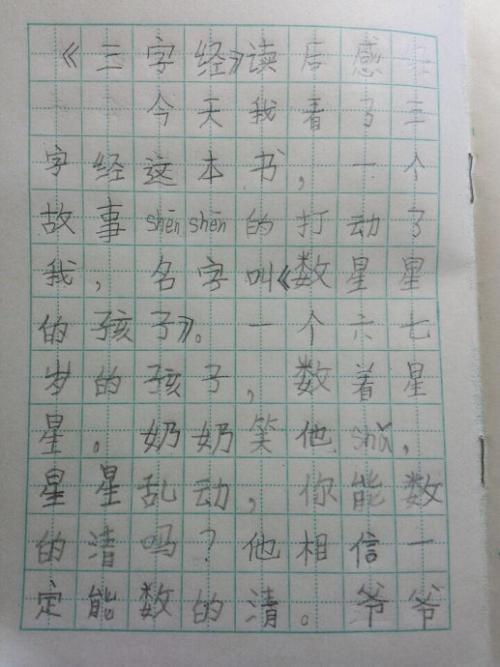 《三字经》读后感
今天我看了三
字经这本书，一个
故事shēnshēn的打动了
我，名字叫《数星星
的孩子》。一个六七
岁的孩子，数着星
星。奶奶笑他shǎ，
星星乱动，你能数
的清吗？他相信一
定能数的清。爷爷